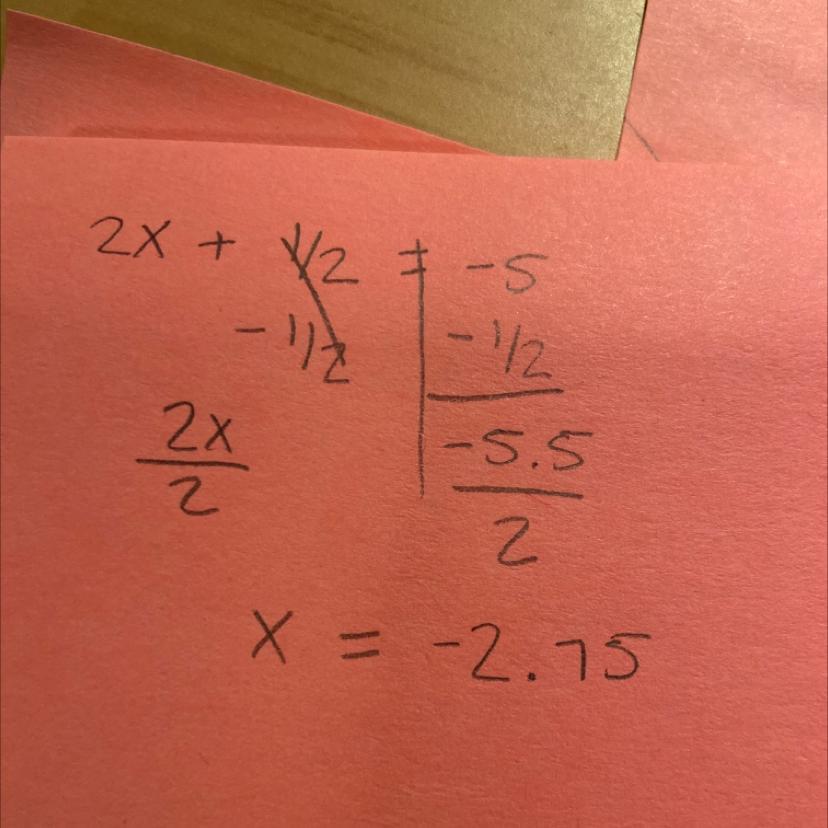 2x + 1/2 = -5
-1/2 -1/2
2x -5.5
2 2
x = -2.75